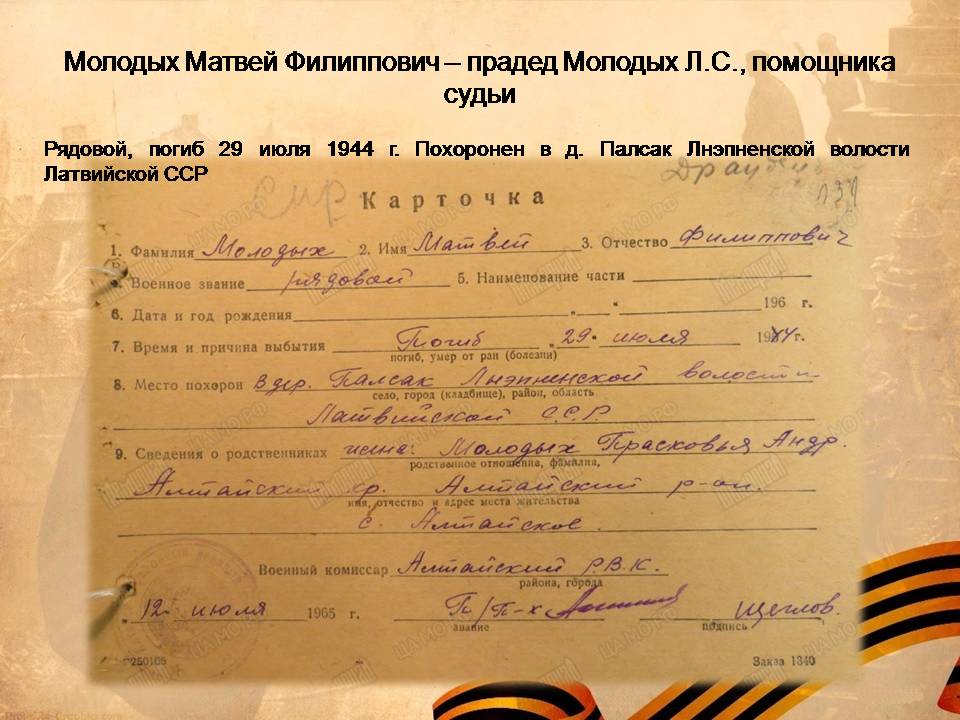 Молодых Матвей Филиппович – прадед Молодых Л.С., помощника
судьи
Рядовой, погиб 29 июля 1944 г. Похоронен в д. Палсак Лнэпненской волости
Латвийской ССР
Карточка
п31
1. Фамилия Молодых 2. Имя Матвей 3. Отчество Филиппович
Военное звание рядовой 5. Наименование части
6. Дата и год рождения " " 196 г.
7. Время и причина выбытия Погиб "29" июля 1944 г.
погиб, умер от ран (болезни)
8. Место похорон В дер. Палсак Лнэпнинской волости
село, город (кладбище), район, область
Латвийской ССР
9. Сведения о родственниках жена: Молодых Прасковья Андр.
родственное отношение, фамилия,
Алтайский кр. Алтайский р-он
имя, отчество и адрес места жительства
с. Алтайское.
Военный комиссар Алтайский Р.В.К.
района, города
"12" июля 1965 г. П/П-к Щеглов.
звание подпись
250105 Заказ 1340